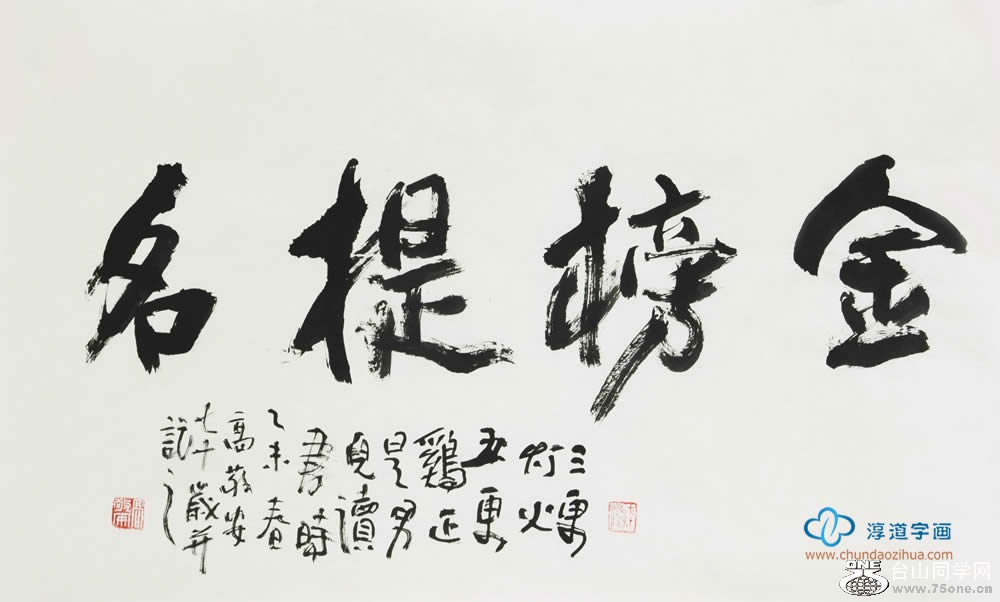 金榜提名
三更
灯火
五更
鷄正
是男
兒讀
書時
乙未春
高敬安
七十歲并
記之
淳道字画
www.chundaozihua.com
ONE
台山同学网
www.75one.cn